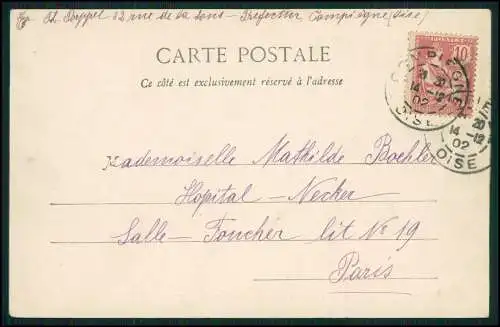 32 rue de la Sous-Préfecture, Compiègne (Oise)
CARTE POSTALE
Ce côté est exclusivement réservé à l'adresse
10
COMPIEGNE
14 -12
02
OISE
20
14 -12
02
OISE
Mademoiselle Mathilde Boehler
Hopital - Necker
Salle - Foucher lit No 19
Paris